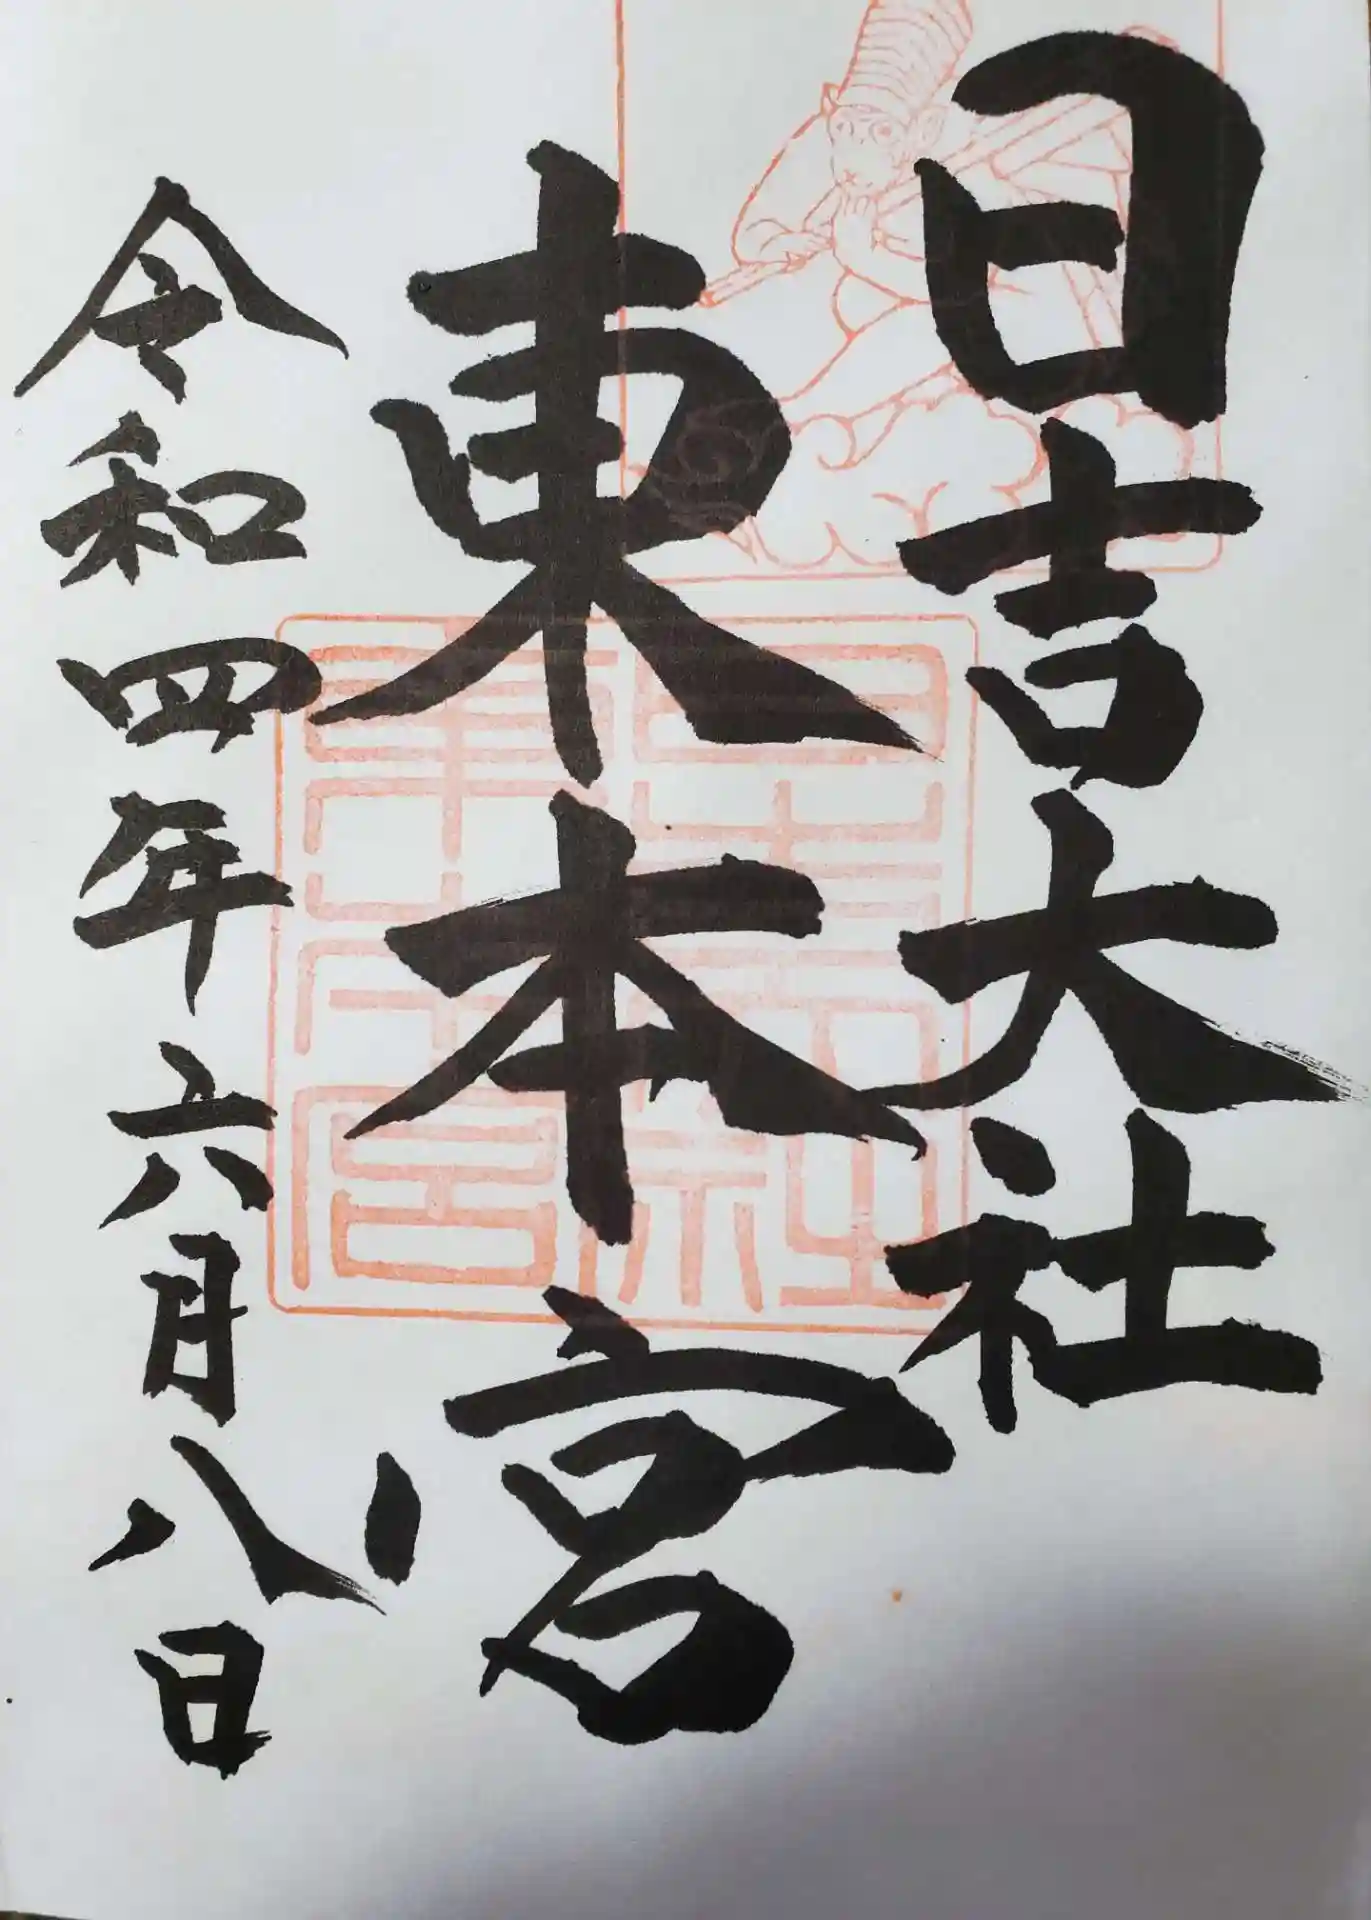 日吉大社
東本宮
令和四年六月八日
日吉大社
東本宮